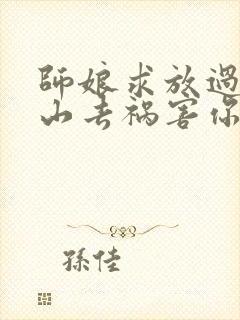 師娘求放過
山去禍害你
孫佳